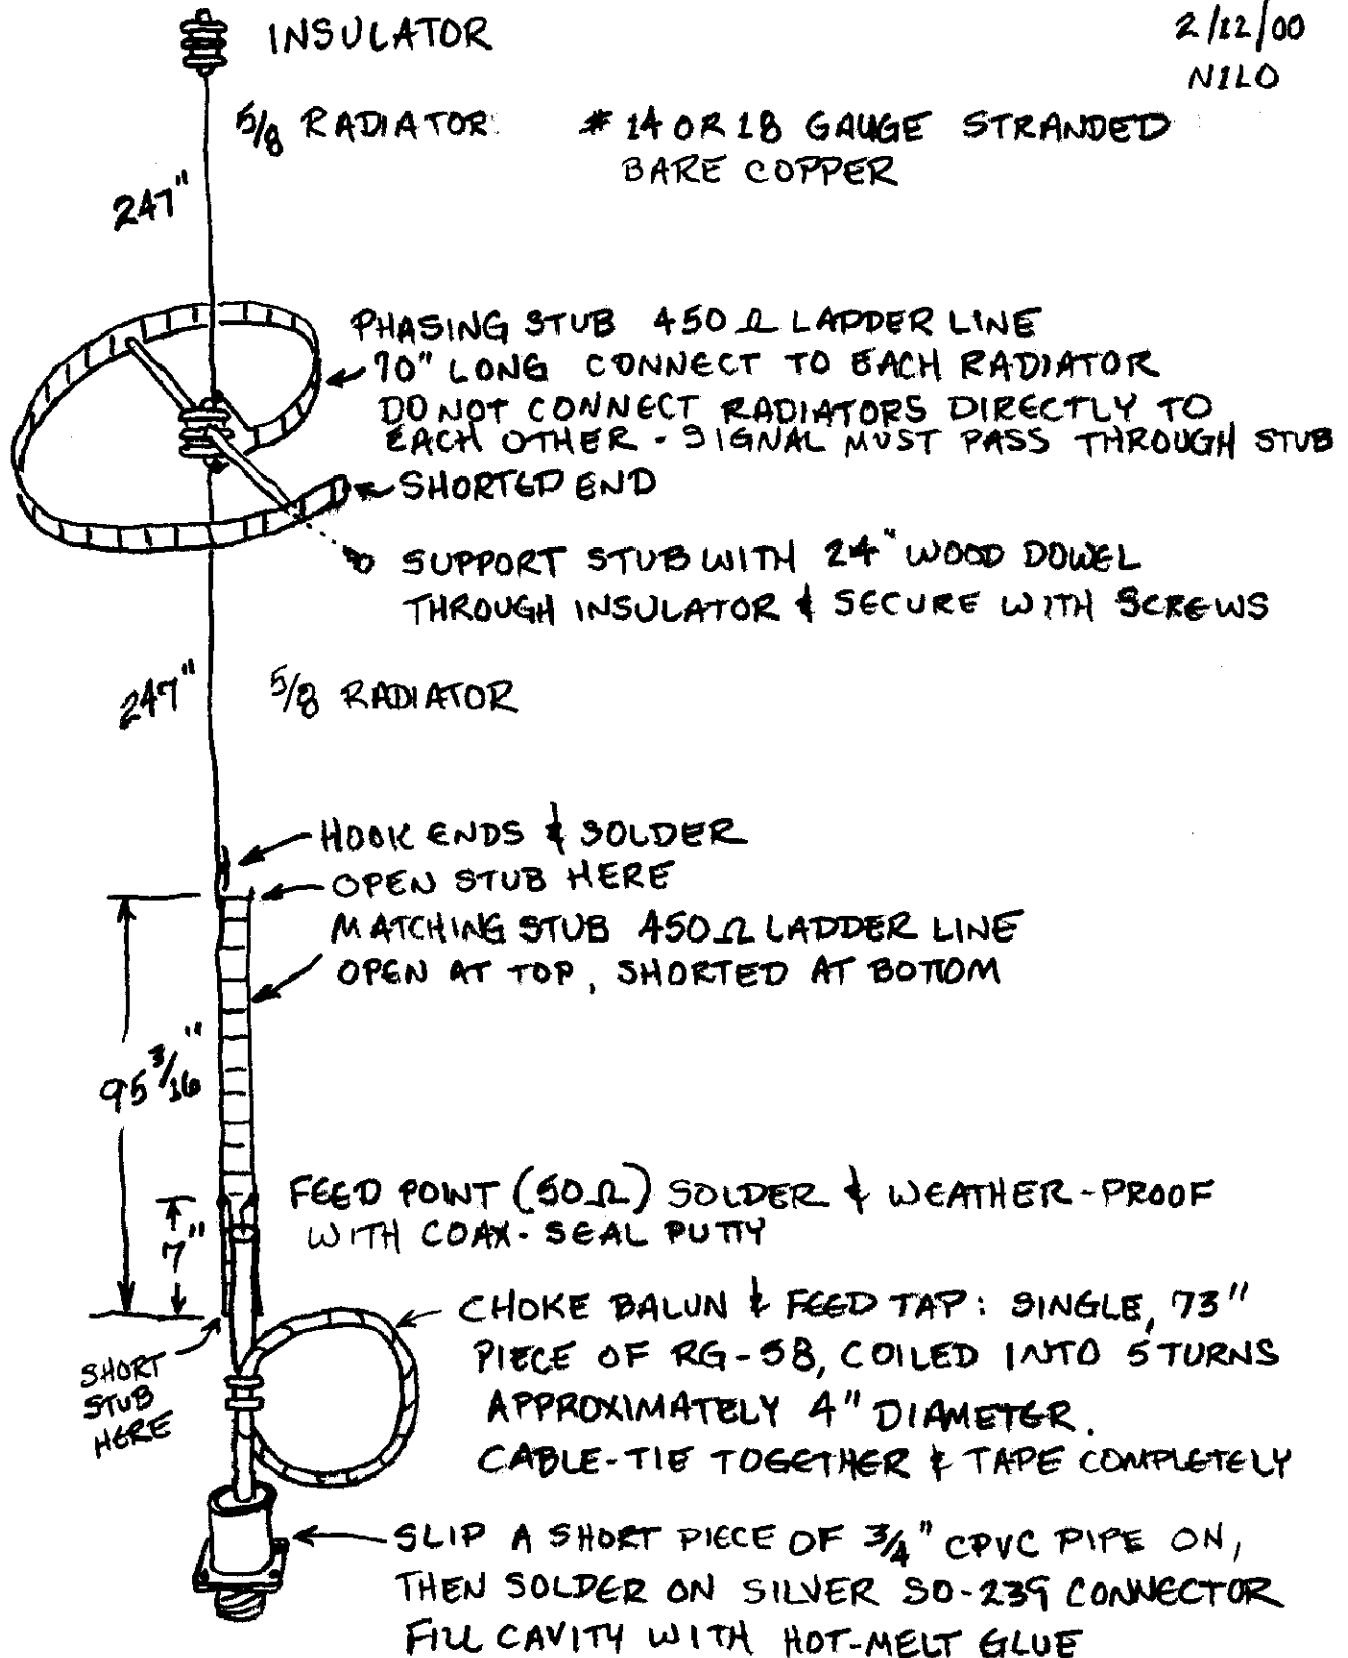 INSULATOR
2/12/00
N1LO
5/8 RADIATOR: # 14 OR 18 GAUGE STRANDED
BARE COPPER
247"
PHASING STUB 450Ω LADDER LINE
70" LONG CONNECT TO EACH RADIATOR
DO NOT CONNECT RADIATORS DIRECTLY TO
EACH OTHER - SIGNAL MUST PASS THROUGH STUB
SHORTED END
SUPPORT STUB WITH 24" WOOD DOWEL
THROUGH INSULATOR & SECURE WITH SCREWS
247"
5/8 RADIATOR
HOOK ENDS & SOLDER
OPEN STUB HERE
MATCHING STUB 450Ω LADDER LINE
OPEN AT TOP, SHORTED AT BOTTOM
95 3/16"
FEED POINT (50Ω) SOLDER & WEATHER-PROOF
WITH COAX-SEAL PUTTY
7"
CHOKE BALUN & FEED TAP: SINGLE, 73"
PIECE OF RG-58, COILED INTO 5 TURNS
APPROXIMATELY 4" DIAMETER.
CABLE-TIE TOGETHER & TAPE COMPLETELY
SHORT
STUB
HERE
SLIP A SHORT PIECE OF 3/4" CPVC PIPE ON,
THEN SOLDER ON SILVER SO-239 CONNECTOR
FILL CAVITY WITH HOT-MELT GLUE